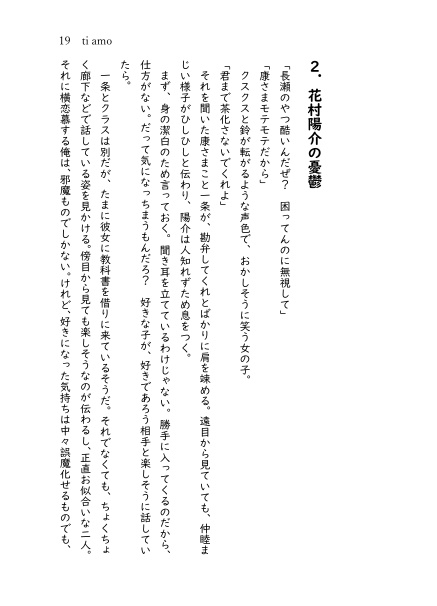 19 ti amo
2．花村陽介の憂鬱
「長瀬のやつ酷いんだぜ？　困ってんのに無視して」
「康さまモテモテだから」
　クスクスと鈴が転がるような声色で、おかしそうに笑う女の子。
「君まで茶化さないでくれよ」
　それを聞いた康さまこと一条が、勘弁してくれとばかりに肩を竦める。遠目から見ていても、仲睦ま
じい様子がひしひしと伝わり、陽介は人知れずため息をつく。
　まず、身の潔白のため言っておく。聞き耳を立てているわけじゃない。勝手に入ってくるのだから、
仕方がない。だって気になっちまうもんだろ？　好きな子が、好きであろう相手と楽しそうに話してい
たら。
　一条とクラスは別だが、たまに彼女に教科書を借りに来ているそうだ。それでなくても、ちょくちょ
く廊下などで話している姿を見かける。傍目から見ても楽しそうなのが伝わるし、正直お似合いな二人。
それに横恋慕する俺は、邪魔ものでしかない。けれど、好きになった気持ちは中々誤魔化せるものでも、